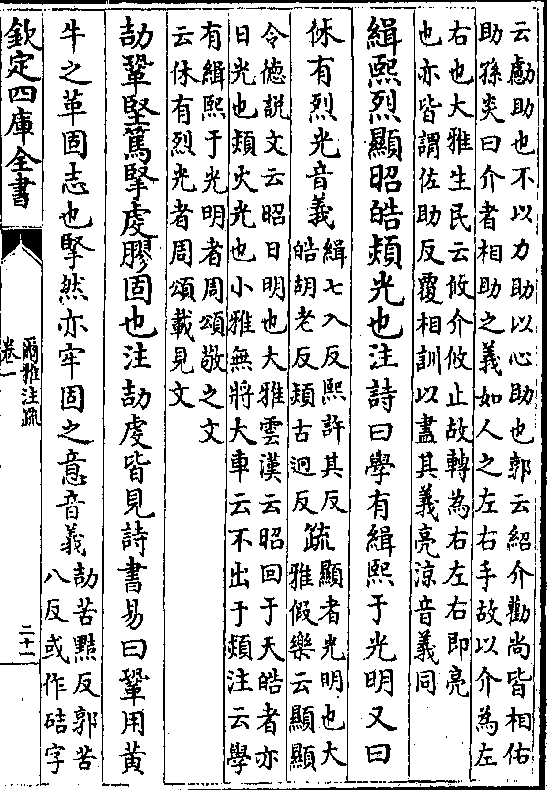 云勴助也不以力助以心助也郭云紹介勸尚皆相佑
助孫炎曰介者相助之義如人之左右手故以介為左
右也大雅生民云攸介攸止故轉為右左右即亮
也亦皆謂佐助反覆相訓以盡其義亮涼音義同
緝熙烈顯昭皓熲光也注詩曰學有緝熙于光明又曰
休有烈光音義
緝七入反熙許其反
皓胡老反熲古迥反
疏
顯者光明也大
雅假樂云顯顯
令德說文云昭日明也大雅雲漢云昭回于天皓者亦
日光也熲火光也小雅無將大車云不出于熲注云學
有緝熙于光明者周頌敬之文
云休有烈光者周頌載見文
劼鞏堅篤掔虔膠固也注劼虔皆見詩書易曰鞏用黃
牛之革固志也掔然亦牢固之意音義
劼苦黠反郭苦
八反或作硈字
欽定四庫全書
爾雅注疏
卷一
二十一